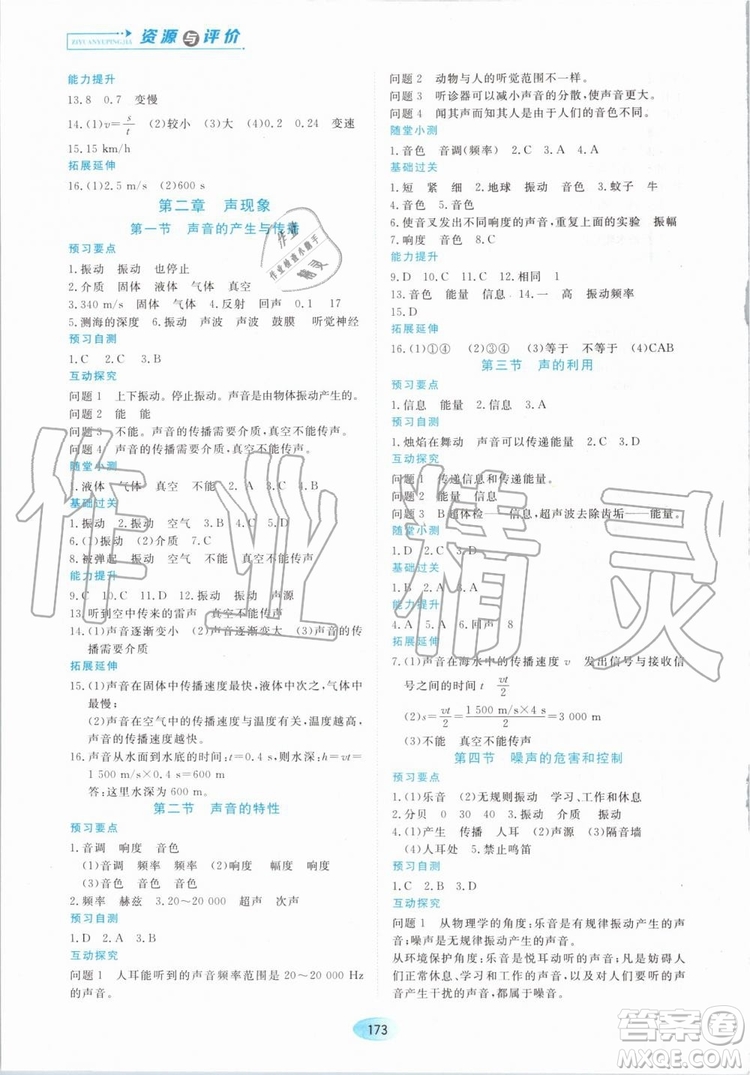 ZIYUANYUPINGJIA
资源与评价
能力提升
13.8 0.7 变慢
14.(1)v=s/t (2)较小 (3)大 0.2 0.24 变速
15.15 km/h
拓展延伸
16.(1)2.5 m/s (2)600 s
第二章 声现象
第一节 声音的产生与传播
预习要点
1.振动 振动 也停止
2.介质 固体 液体 气体 真空
3.340 m/s 固体 气体 4.反射 回声 0.1
5.测海的深度 振动 声波 声波 鼓膜 听觉神经
预习自测
1.C 2.C 3.B
互动探究
问题1 上下振动。停止振动。声音是由物体振动产生的。
问题2 能 能
问题3 不能。声音的传播需要介质,真空不能传声。
问题4 声音的传播需要介质,真空不能传声。
随堂小测
1.液体 气体 真空
基础过关
1.振动 2.振动 空气
6.(1)振动 (2)介质 7.
8.被弹起 振动 空气
能力提升
9.C 10.C 11.振动 振动 声源
13.听到空中传来的雷声 真空不能传声
14.(1)声音逐渐变小 (2)声音逐渐变大 (3)声音的传播需要介质
拓展延伸
15.(1)声音在固体中传播速度最快,液体中次之,气体中最慢;
(2)声音在空气中的传播速度与温度有关,温度越高,声音的传播速度越快。
16.声音从水面到水底的时间t=0.4 s,则水深:h=vt=
1 500 m/s×0.4 s=600 m
答:这里的水深是600 m。
第二节 声音的特性
预习要点
1.音调 响度 音色
(1)音调 频率 频率 (2)响度 幅度 响度
(3)音色
2.频率 赫兹 3.20~20 000 超声 次声
预习自测
1.D 2.A
互动探究
问题1 人耳能听到的声音频率范围是20~20 000 Hz
的声音。
问题2 动物与人的听觉范围不一样。
问题3 听诊器可以减小声音的分散,增大响度。
问题4 闻其声而知其人,是因为每个人的音色不同。
随堂小测
1.音色 音调(频率) C 2.C 3.A
基础过关
1.短 紧 细 2.地球 振动 3.音色 4.蚊子 牛
6.使音叉发出不同响度的声音,重复上面的实验 振幅
7.响度 音色 8.C
能力提升
9.D 10.D 11.C 12.相同 1
13.音色 能量 信息 14.一 高 振动频率
15.D
拓展延伸
16.(1)①④ (2)③④ (3)等于 不等于 (4)CAB
第三节 声的利用
预习要点
1.信息 能量 2.信息 3.A
预习自测
1.烛焰在舞动 声音可以传递能量 2.C 3.D
互动探究
问题1 传递信息和传递能量。
问题2 信息 能量
问题3 B超体检——信息,超声波去除齿垢——能量。
随堂小测
1.D 2.D 3.D
基础过关
1.B 2.A
能力提升
4.A 5.A 6.回声 8
拓展延伸
7.(1)声音在海水中的传播速度v 发出信号与接到回来信号的时间t vt/2
(2)s=vt/2=1 500 m/s×4 s/2=3 000 m
(3)不能 真空不能传声
第四节 噪声的危害和控制
预习要点
1.(1)乐音 (2)无规则振动 学习、工作和休息
2.分贝 0 30 40 3.振动
4.(1)产生 传播 人耳 (2)声源 (3)隔音墙
(4)人耳处 5.禁止鸣笛
预习自测
1.C 2.B 3.D
互动探究
问题1 从物理学的角度:乐音是有规律振动产生的声
音;噪声是无规律振动产生的声音。
从环境保护角度:乐音是悦耳动听的声音;凡是妨碍人
们正常休息、学习和工作的声音,以及对人们要听的声
音产生干扰的声音,都属于噪音。
173
作业精灵
作业检查小助手
精灵
答案圈
MXQE.COM